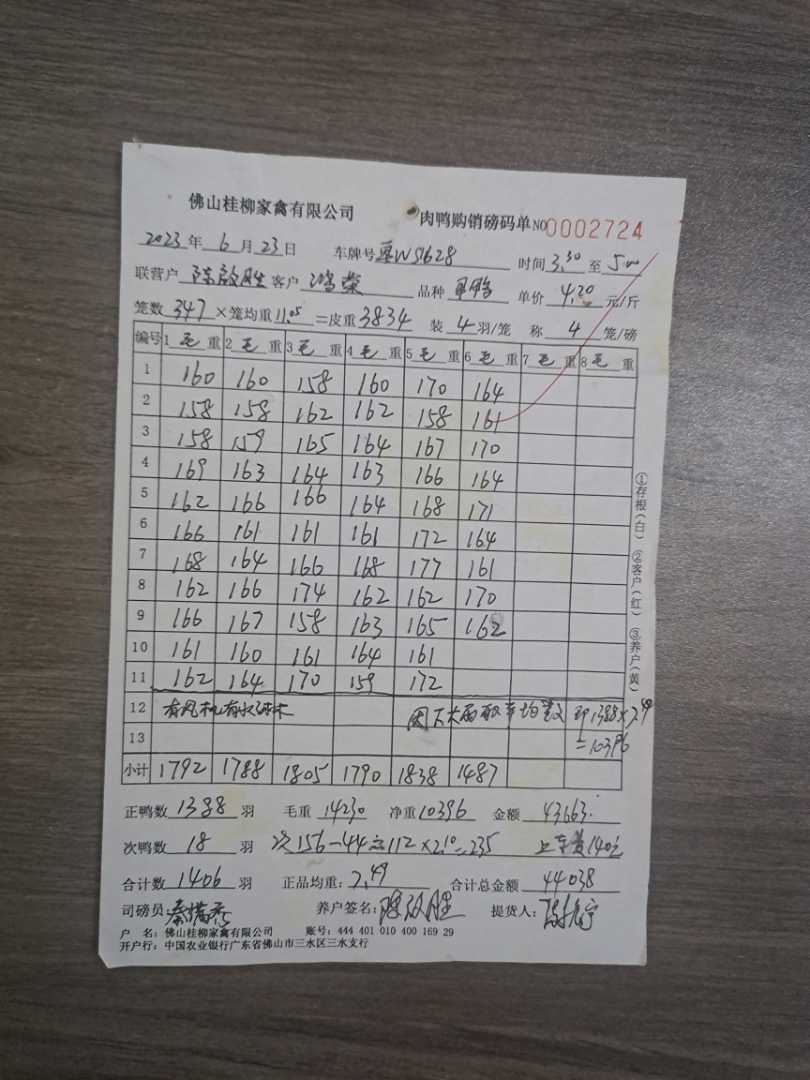 佛山桂柳家禽有限公司 肉鸭购销磅码单 NO 0002724
2023年6月23日 车牌号 粤WS1628 时间3.30至5.00
联营户 陈啟胜 客户 鸿荣 品种 单价 4.20 元/斤
笼数 347 ×笼均重 11.05 =皮重 3834 装 4 羽/笼 称 4 笼/磅
编号 1毛重 2毛重 3毛重 4毛重 5毛重 6毛重 7毛重 8毛重
1 160 160 158 160 170 164
2 158 158 162 162 158 161
3 158 159 165 164 167 170
4 169 163 164 163 166 164
5 162 166 166 164 168 171
6 166 161 161 161 172 164
7 168 164 166 168 177 161
8 162 166 174 162 162 170
9 166 167 158 163 165 162
10 161 160 161 164 161
11 162 164 170 159 172
12 有风机有水 因下大雨取平均数 即1388×7.49
13 =10396
小计 1792 1788 1805 1790 1838 1487
正鸭数 1388 羽 毛重 14230 净重 10396 金额 43663.
次鸭数 18 羽 次156-44=112×2.10=235 上车费140元
合计数 1406 羽 正品均重: 7.49 合计总金额 44038
司磅员: 养户签名: 陈啟胜 提货人:
户 名: 佛山桂柳家禽有限公司 账号: 444 401 010 400 169 29
开户行: 中国农业银行广东省佛山市三水区三水支行
①存根(白) ②客户(红) ③养户(黄)